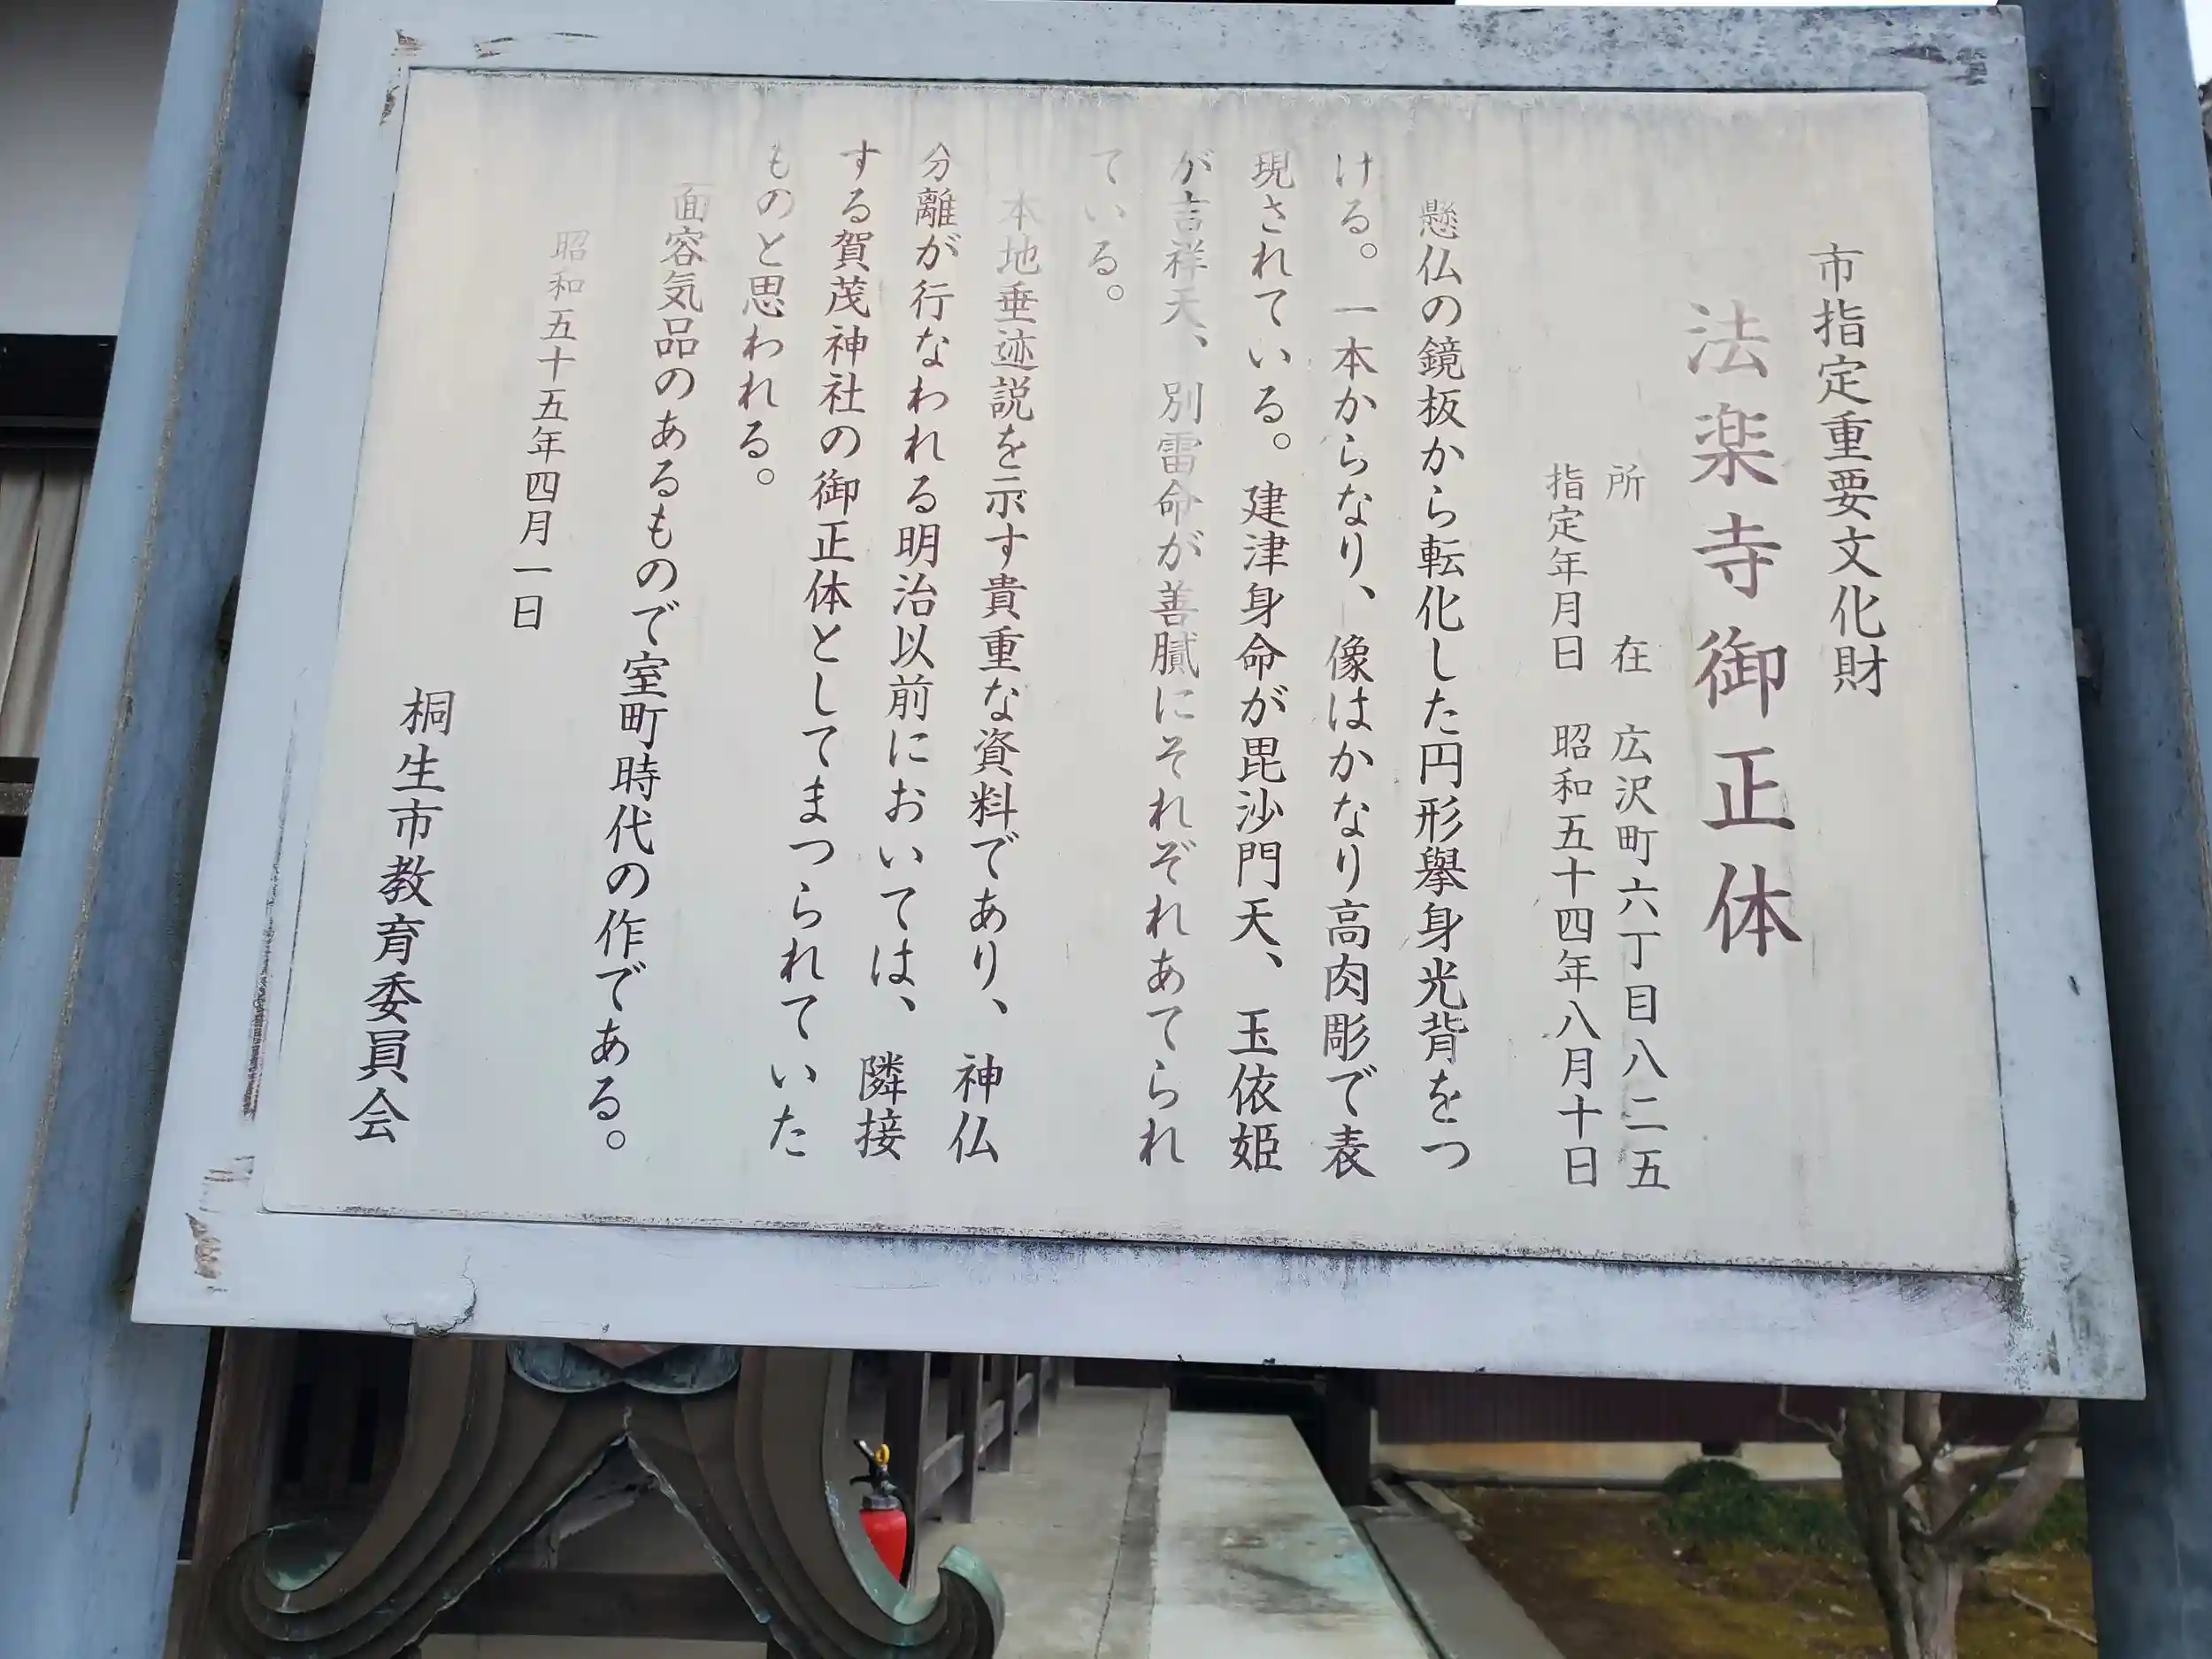 市指定重要文化財
法楽寺御正体
所在 広沢町六丁目八二五
指定年月日 昭和五十四年八月十日
懸仏の鏡板から転化した円形擧身光背をつ
ける。一本からなり、像はかなり高肉彫で表
現されている。建津身命が毘沙門天、玉依姫
が吉祥天、別雷命が善膩にそれぞれあてられ
ている。
本地垂迹説を示す貴重な資料であり、神仏
分離が行なわれる明治以前においては、隣接
する賀茂神社の御正体としてまつられていた
ものと思われる。
面容気品のあるもので室町時代の作である。
昭和五十五年四月一日
桐生市教育委員会